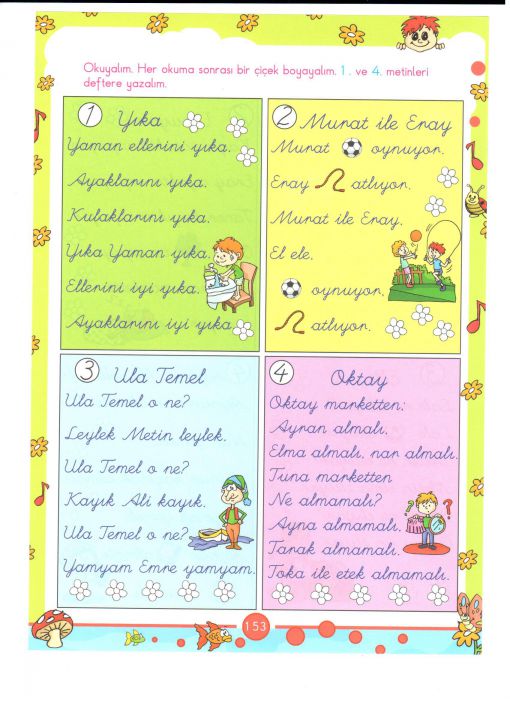 Okuyalım. Her okuma sonrası bir çiçek boyayalım. 1. ve 4. metinleri
deftere yazalım.
1 Yıka
Yaman ellerini yıka.
Ayaklarını yıka.
Kulaklarını yıka.
Yıka Yaman yıka.
Ellerini iyi yıka.
Ayaklarını iyi yıka.
2 Murat ile Eray
Murat oynuyor.
Eray atlıyor.
Murat ile Eray,
El ele,
oynuyor,
atlıyor.
3 Ula Temel
Ula Temel o ne?
Leylek Metin leylek.
Ula Temel o ne?
Kayık Ali kayık.
Ula Temel o ne?
Yamyam Emre yamyam.
4 Oktay
Oktay marketten;
Ayran almalı.
Elma almalı, nar almalı.
Tuna marketten
Ne almamalı?
Ayna almamalı.
Tarak almamalı.
Toka ile etek almamalı.
? ?
153